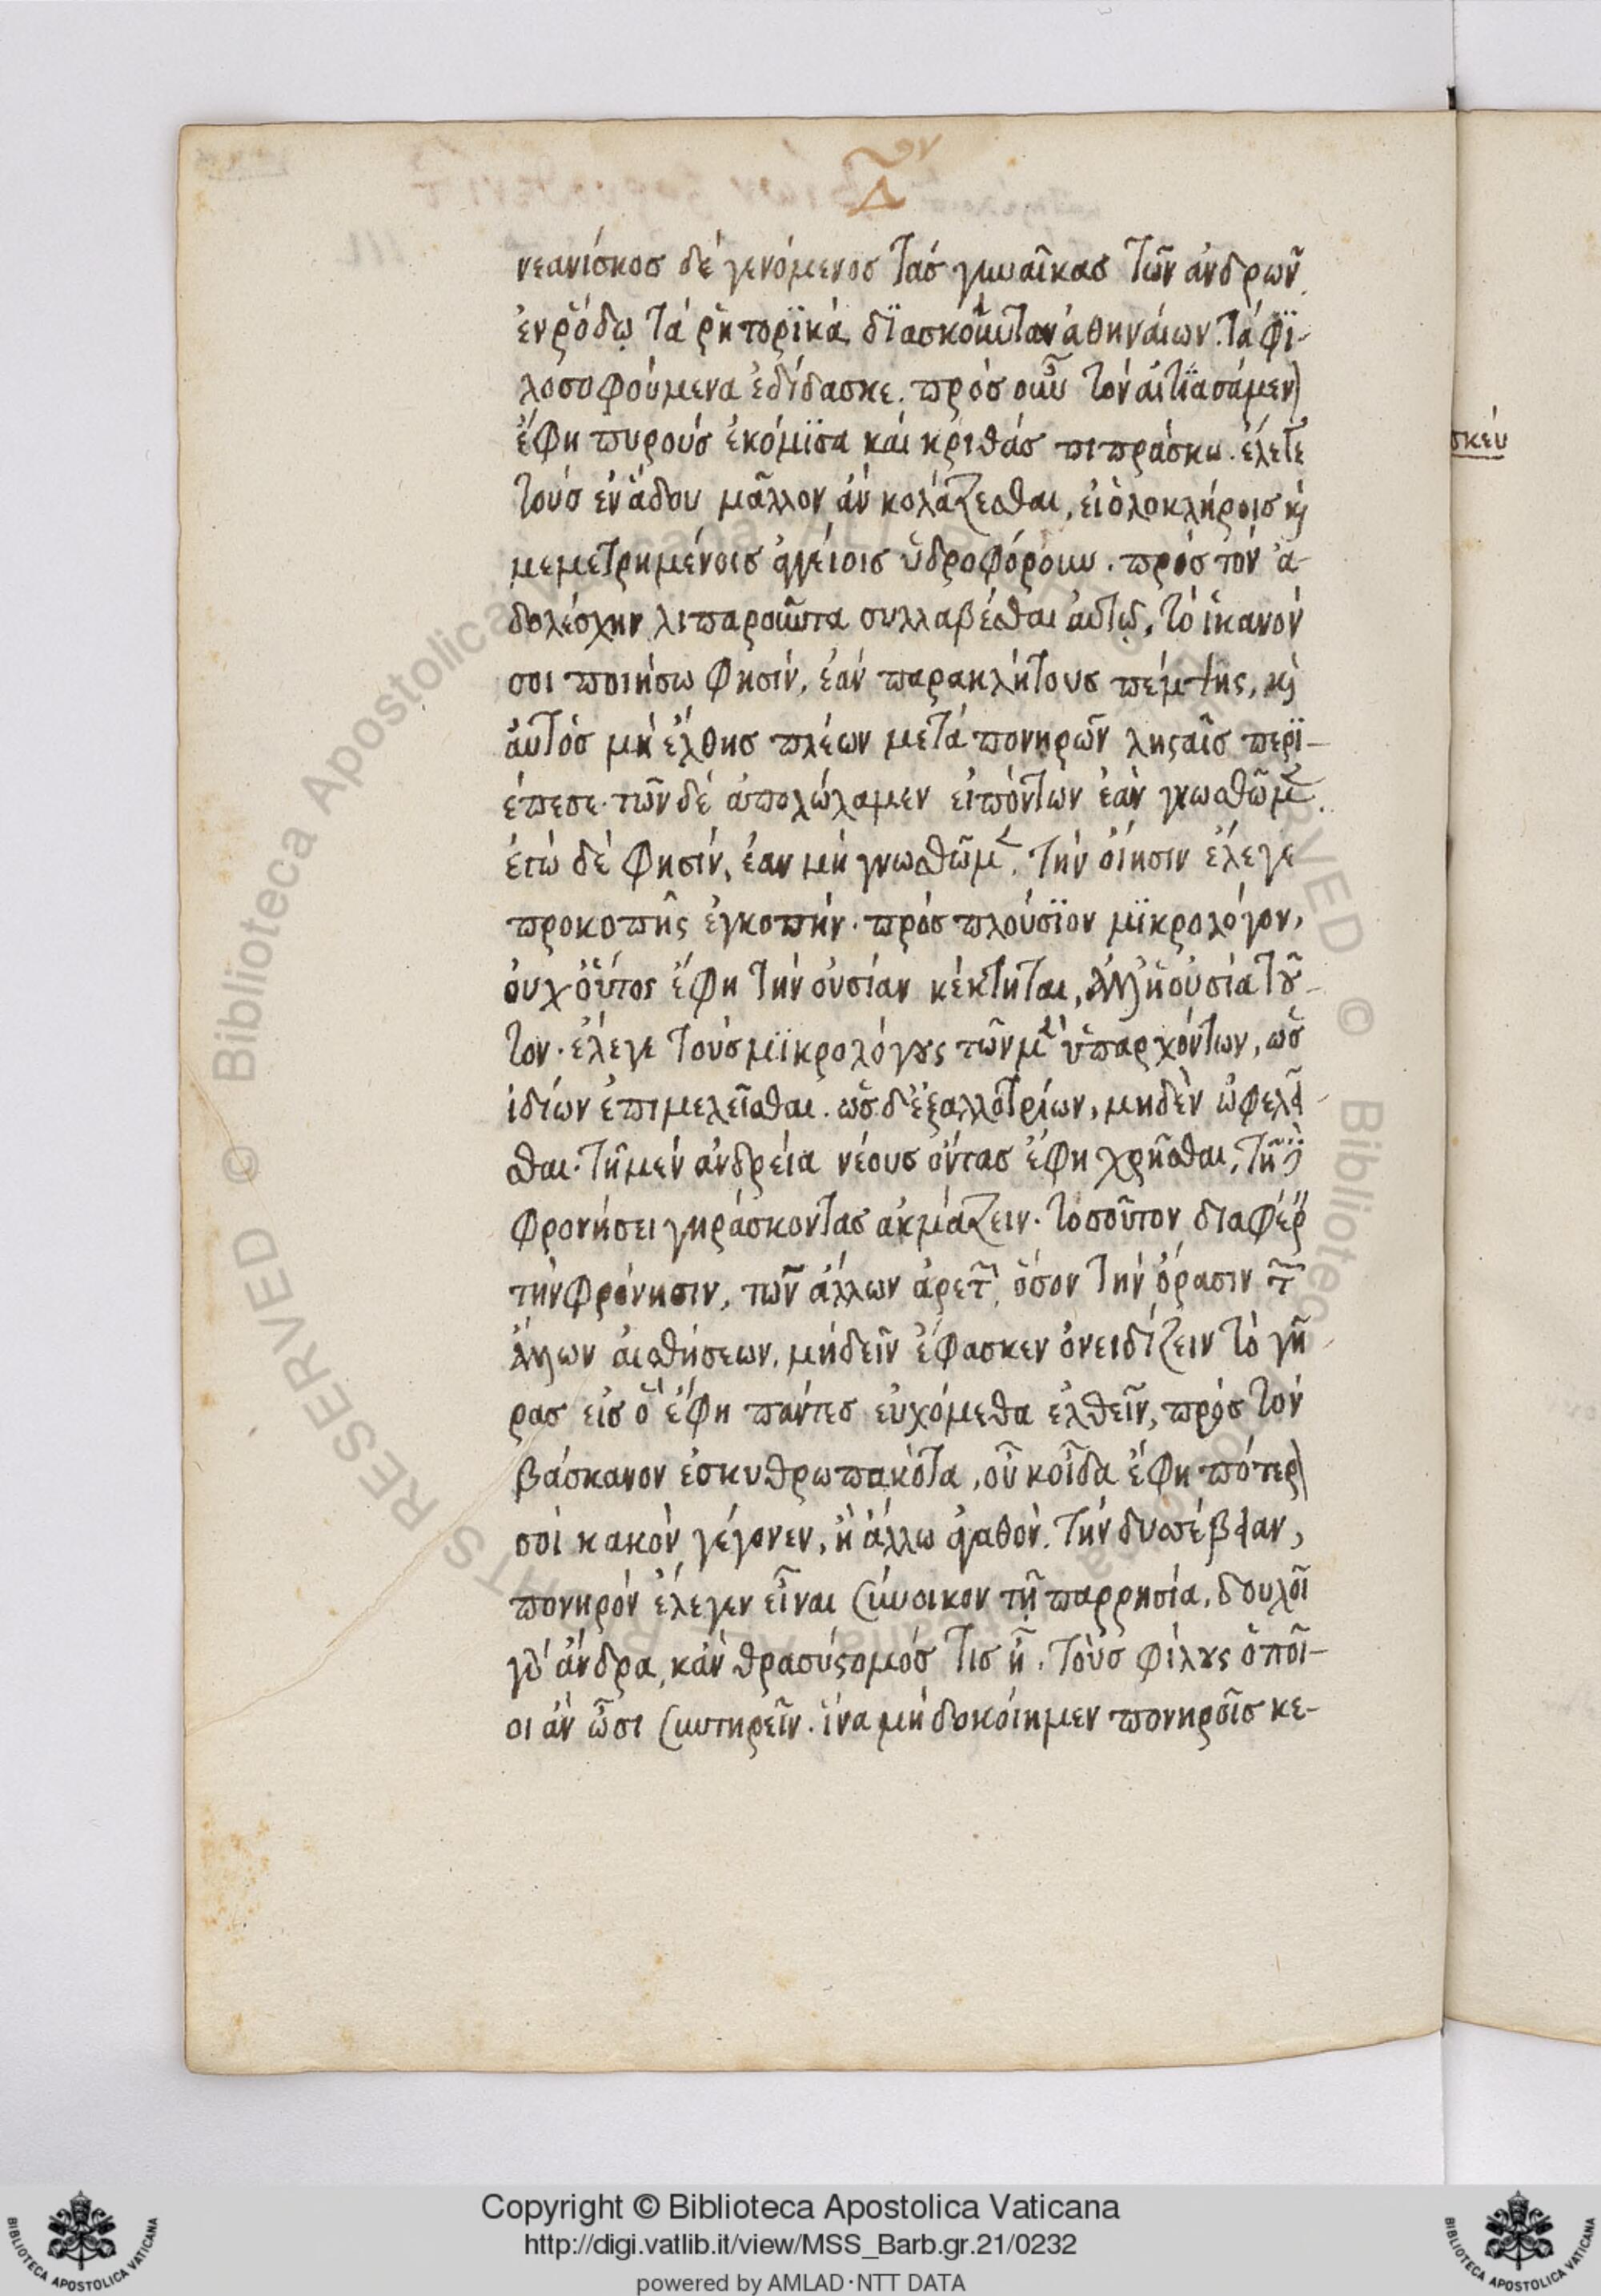 Δον
νεανίσκοσ δέ γενόμενοσ τάσ γυναῖκασ τῶν ἀνδρῶν.
ἐν ῥόδω τά ῥητορϊκά δϊασκούντων ἀθηνάιων. τά φϊ-
λοσοφούμενα ἐδίδασκε. πρόσ οὖν τόν ἀιτϊασάμεν)
ἔφη πυρούσ ἐκόμϊσα καί κριθάσ πιπράσκω. ἔλεγε
τούσ ἐν ἅδου μᾶλλον ἄν κολάζεσθαι, ἐι ὁλοκλήροισ κ̀
μεμετρημένοισ ἀγγείοισ ὑδροφόρουν. πρόσ τόν ἀ-
δολέσχην λιπαροῦντα συλλαβέσθαι ἀυτῷ, τό ἱκανόν
σοι ποιήσω φησίν, ἐάν παρακλήτουσ πέμψης, κ̀
ἀυτόσ μή ἔλθησ πλέων μετά πονηρῶν λῃσταῖσ περϊ-
έπεσε. τῶν δέ ἀπολώλαμεν ἐιπόντων ἐάν γνωσθῶμ
ἐγώ δέ φησίν, ἐάν μή γνωσθῶμ. τήν ὄιησιν ἔλεγε
προκοπῆς ἐγκοπήν. πρόσ πλούσϊον μϊκρολόγον,
ὀυχ ὁὗτος ἔφη τήν ὀυσίαν κέκτηται, ἀλλ' ἡ ὀυσία τοῦ-
τον. ἔλεγε τούσ μϊκρολόγους τῶν μ ὑπαρχόντων, ὡσ
ἰδίων ἐπιμελεῖσθαι. ὡσ δ' ἐξ αλλοτρίων, μηδὲν ὠφελεῖ-
σθαι. τῇ μέν ἀνδρεία νέουσ ὄντασ ἔφη χρῆσθαι, τῇ δὲ
φρονήσει γηράσκοντασ ακμάζειν. τοσοῦτον διαφέρ
τήν φρόνησιν, τῶν ἄλλων ἀρετ, ὅσον τήν ὅρασιν τ
ἄλλων ἀισθήσεων. μή δεῖν ἔφασκεν ὀνειδίζειν τό γῆ-
ρασ εἰσ ὅ ἔφη πάντεσ εὐχόμεθα ἐλθεῖν, πρόσ τόν
βάσκανον ἐσκυθρωπακότα, οὖκ οἶδα ἔφη πότερ)
σοί κακὸν γέγονεν, ἢ ἄλλω ἀγαθόν. τήν δυσέβειαν,
πονηρόν ἔλεγεν εἶναι σύνοικον τῇ παρρησία. δουλοῖ
γὰρ ἄνδρα, κἄν θρασύστομόσ τισ ᾖ. τοὺσ φίλους ὁποῖ-
οι ἄν ὦσι συντηρεῖν. ἵνα μή δοκόιημεν πονηροῖσ κε-
σκεύ
Copyright © Biblioteca Apostolica Vaticana
http://digi.vatlib.it/view/MSS_Barb.gr.21/0232
powered by AMLAD·NTT DATA